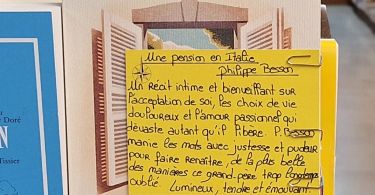 Une pension en Italie.
Philippe Besson
Un récit intime et bienveillant sur
l'acceptation de soi, les choix de vie
douloureux et l'amour passionnel qui
dévaste autant qu'il libère. P. Besson
manie les mots avec justesse et pudeur
pour faire renaître, de la plus belle
des manières ce grand-père trop longtemps
oublié. Lumineux, tendre et émouvant
Doré
N
Tissier